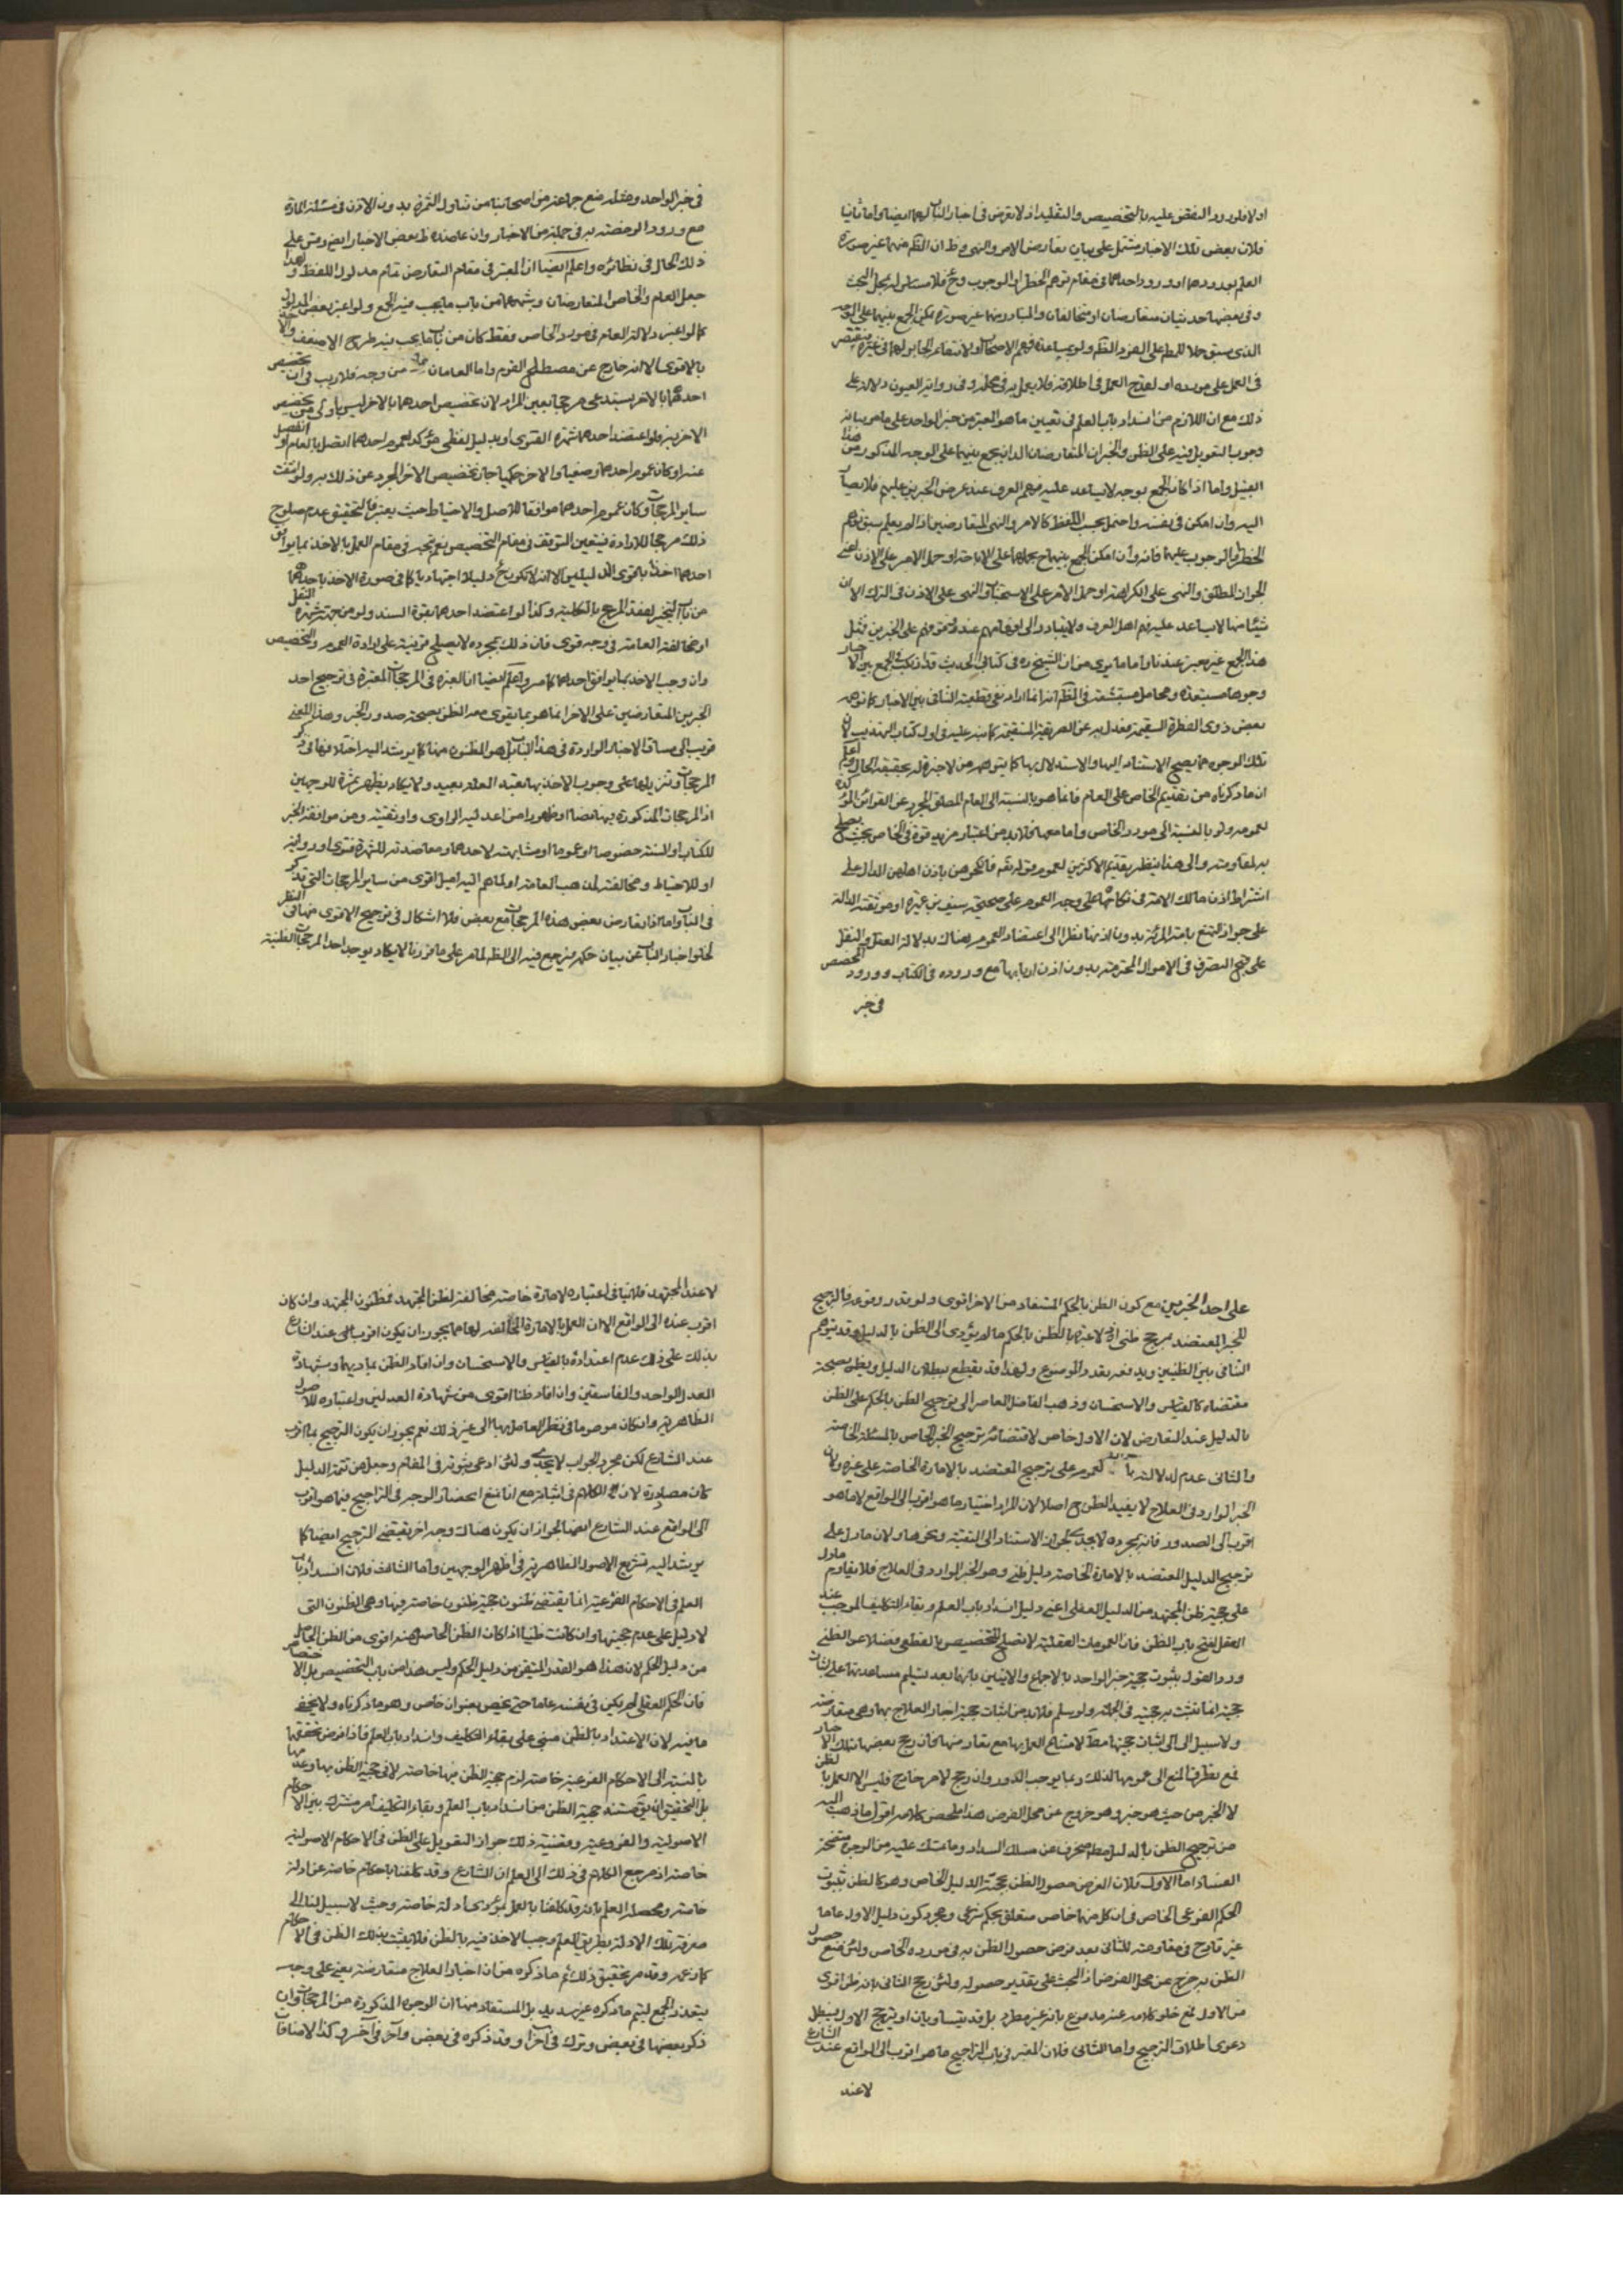 اولا فلورود النقض عليه بالتخصيص والتقليد اذ لا تعرض فى اخبار الباب لهما ايضا واما ثانيا
فلان بعض تلك الاخبار مشتمل على بيان تعارض الامر والنهى وظ ان الظم منهما غير صورة
العلم بورودهما او ورود احدهما فى مقام توهم الحظر او الوجوب وح فلا مساس له بمحل البحث
وفى بعضها حديثان متعارضان او متخالفان والمتبادر منهما غير صورة يمكن الجمع بينهما على الوجه
الذى سبق حملا للمط على الفرد الظم ولو بمساعدة فهم الاصحاب
فى العمل على مورده او لقدح العمل فى اطلاقه فلا يعمل به فى محله وفى رواية العيون دلالة على
ذلك مع ان اللازم من انسداد باب العلم فى تعيين ما هو المعتبر من خبر الواحد على ما مر بيانه
وجوب التعويل فيه على الظن والخبران المتعارضان اللذان يجمع بينهما على الوجه المذكور من هذا
القبيل واما اذا كان الجمع بوجه لا يساعد عليه فهم العرف عند عرض الخبرين عليهم فلا يصار
اليه وان امكن فى نفسه واحتمل بحسب اللفظ كالامر والنهى المتعارضين اذا لم يعلم سبق توهم
الحظر او الوجوب عليهما فانه وان امكن الجمع بينهما بحملهما على الاباحة او حمل الامر على الاذن اعنى
الجواز المطلق والنهى على الكراهة او حمل الامر على الاستحباب والنهى على الاذن فى الترك الا ان
شيئا منها لا يساعد عليه فهم اهل العرف ولا يتبادر الى اذهانهم عند وقوفهم على الخبرين فمثل
هذا الجمع غير معتبر عندنا واما ما يرى من ان الشيخ ره فى كتابى الحديث قد ارتكب فى الجمع بين الاخبار
وجوها مستبعدة ومحامل مستشنعة فالظم انه انما اراد نفى قطعية التنافى بين الاخبار كما توهمه
بعض ذوى الفطرة السقيمة فعدل به عن الطريقة المستقيمة كما نبه عليه فى اول كتاب التهذيب لا ان
تلك الوجوه مما يصح الاستناد اليها والاستدلال بها كما يتوهمه من لا خبرة له بحقيقة الحال واعلم
ان ما ذكرناه من تقديم الخاص على العام فانما هو بالنسبة الى العام المطلق المجرد عن القرائن المؤكدة
لعمومه ولو بالنسبة الى مورد الخاص واما معها فلا بد من اعتبار مزيد قوة فى الخاص بحيث يصلح
به لمقاومته والى هذا ينظر تقديم الاكثرين لعموم قوله تعم فانكحوهن باذن اهلهن الدال على
اشتراط اذن مالك الامة فى نكاحها على وجه العموم على صحيحتى سيف بن عميرة او موثقته الدالة
على جواز التمتع بامة المرئة بدون اذنها نظرا الى اعتضاد العموم هناك بدلالة العقل والنقل
على قبح التصرف فى الاموال المحترمة بدون اذن اربابها مع وروده فى الكتاب وورود المخصص
فى خبر
فى خبر الواحد ومثله منع جماعة من اصحابنا من تناول الثمرة بدون الاذن فى مسئلة المارة
مع ورود الرخصة به فى جملة من الاخبار وان عاضده ظ بعض الاخبار ايض وقس على
ذلك الحال فى نظائره واعلم ايضا ان المعتبر فى مقام التعارض تمام مدلول اللفظ ولهذا
جعل العام والخاص المتعارضان وشبههما من باب ما يجب فيه الجمع ولو اعتبر بعض المدلول
كما لو اعتبر دلالة العام فى مورد الخاص فقط كان من باب ما يجب فيه طرح الاضعف والاخذ
بالاقوى الا انه خارج عن مصطلح القوم واما العامان من وجه فلا ريب فى ان تخصيص
احدهما بالاخر يستدعى مرجحا يعين المراد لان تخصيص احدهما بالاخر ليس باولى من تخصيص
الاخر به فلو اعتضد احدهما بشهرة الفتوى او بدليل لفظى مؤكد لعموم احدهما اتصل بالعام او انفصل
عنه او كان عموم احدهما وضعيا والاخر حكميا جاز تخصيص الاخر المجرد عن ذلك به ولو انتفت
ساير المرجحات وكان عموم احدهما موافقا للاصل والاحتياط حيث يعتبر فالتحقيق عدم صلوح
ذلك مرجحا للارادة فيتعين التوقف فى مقام التخصيص نعم يتجه فى مقام العمل بالاخذ بما يوافق
احدهما اخذا باقوى الدليلين الا انه لا يكون ح دليلا اجتهاديا كما فى صورة الاخذ باحدهما
من باب التخيير لفقد المرجح بالكلية وكذا لو اعتضد احدهما بقوة السند ولو من جهة شهرة النقل
او مخالفة العامة فى وجه قوى فان ذلك بمجرده لا يصلح قرينة على ارادة العموم والتخصيص
وان وجب الاخذ بما يوافق احدهما كما مر واعلم ايضا ان العبرة فى المرجحات المعتبرة فى ترجيح احد
الخبرين المتعارضين على الاخر انما هو بما يقوى معه الظن بصحة صدور الخبر وهذا المعنى
قريب الى مساق الاخبار الواردة فى هذا الباب بل هو المظنون منها كما يرشد اليه اختلافها فى ذكر
المرجحات وتنزيلها على وجوب الاخذ بها تعبدا لعله بعيد ولا يكاد يظهر ثمرة للوجهين
اذ المرجحات المذكورة بها نصا او ظهورا من اعدلية الراوى واوثقيته ومن موافقة الخبر
للكتاب او السنة خصوصا او عموما او مشابهته لاحدهما ومعاضدته للشهرة فتوى او رواية
او للاحتياط ومخالفته لمذهب العامة او لما هم اليه اميل اقوى من ساير المرجحات التى تذكر
فى الباب واما اذا تعارض بعض هذه المرجحات مع بعض فلا اشكال فى ترجيح الاقوى منها فى النظر
لخلو اخبار الباب عن بيان حكمه فيرجع فيه الى الظن لما مر على ما قررنا لا يكاد يوجد احد المرجحات الظنية
على احد الخبرين مع كون الظن بالحكم المستفاد من الاخر اقوى ولو قدر وقوعه فالترجيح
للخبر المعتضد بمرجح ظنى اذ لا عبرة بالظن بالحكم ما لم يؤدى الى الظن بالدليل وقد يتوهم
التنافى بين الظنيين ويدفعه تعدد الموضوع ولهذا قد يقطع ببطلان الدليل ويظن بصحة
مقتضاه كالقياس والاستحسان وذهب الفاضل المعاصر الى ترجيح الظن بالحكم على الظن
بالدليل عند التعارض لان الاول خاص لاقتضائه ترجيح الخبر الخاص بالمسئلة الخاصة
والثانى عدم لدلالته بالعموم على ترجيح المعتضد بالامارة الخاصة على غيره ولان
الخبر الوارد فى العلاج لا يفيد الظن ح اصلا لان المراد اختيار ما هو اقرب الى الواقع لا ما هو
اقرب الى الصدور فانه بمجرده لا يجدى لجواز الاستناد الى التقية ونحوها ولان ما دل على
ترجيح الدليل المعتضد بالامارة الخاصة دليل ظنى وهو الخبر الوارد فى العلاج فلا يقاوم ما دل
على حجية ظن المجتهد من الدليل العقلى اعنى دليل انسداد باب العلم وبقاء التكليف الموجب عند
العقل لفتح باب الظن فان العمومات العقلية لا تصلح للتخصيص بالقطعى فضلا عن الظنى
ورد القول بثبوت حجية خبر الواحد بالاجماع والايتين بانها بعد تسليم مساعدتها على اثبات
حجيته انما تثبت به حجيته فى الجملة ولو سلم فلا بد من اثبات حجية اخبار العلاج بها وهى متعارضة
ولا سبيل الى اثبات حجيتها مط لامتناع العمل بها مع تعارضها فان رجح بعضها بتلك الاخبار
نمنع تطرق المنع الى عمومها لذلك وربما يوجب الدور وان رجح لامر خارج فليس الا العمل بالظن
لا الخبر من حيث هو خبر وهو خروج عن محل الفرض هذا ملخص كلامه اقول ما ذهب اليه
من ترجيح الظن بالدليل مط منحرف عن مسلك السداد وما تمسك عليه من الوجوه متضحة
الفساد اما الاول فلان الفرض حصول الظن بحجية الدليل الخاص وهو كالظن بثبوت
الحكم الفرعى الخاص فى ان كل منهما خاص متعلق بحكم شرعى ومجرد كون دليل الاول عاما
غير قادح فى مقاومته للثانى بعد فرض حصول الظن به فى مورده الخاص ولئن منع حصول
الظن به خرج عن محل الفرض اذ البحث على تقدير حصوله ولئن رجح الثانى بانه ظن اقوى
من الاول فمع خلو كلامه عنه مدفوع بانه غير مطرد بل قد يتساويان او يترجح الاول فيبطل
دعوى اطلاق الترجيح واما الثانى فلان المعتبر فى باب التراجيح ما هو اقرب الى الواقع عند الشارع
لا عند
لا عند المجتهد فلا ينافى اعتباره لامارة خاصة مخالفة لظن المجتهد فمظنون المجتهد وان كان
اقرب عنده الى الواقع الا ان العمل بالامارة المخالفة لها مما يجوز ان يكون اقرب اليه عند الشارع
يدلك على ذلك عدم اعتداده بالقياس والاستحسان وان افاد الظن بمادبهما وبشهادة
العدل الواحد والفاسقين وان افاد ظنا اقوى من شهادة العدلين واعتباره للاصول
الظاهرية وان كان موهوما فى نظر العامل بها الى غير ذلك نعم يجوز ان يكون الترجيح بما اقرب
عند الشارع لكن مجرد الجواب لا يجدى ولئن ادعى ثبوته فى المقام وجعل من تتمة الدليل
كان مصادرة لان الكلام فى اثباته مع انا نمنع انحصار الوجه فى التراجيح فيما هو اقرب
الى الواقع عند الشارع ايضا لجواز ان يكون هناك وجه اخر يقتضى الترجيح ايضا كما
يرشد اليه تشريع الاصول الظاهرية فى اظهر الوجهين واما الثالث فلان انسداد باب
العلم فى الاحكام الفرعية انما يقتضى ظنون حجية ظنون خاصة فيها وهى الظنون التى
لا دليل على عدم حجيتها وان كانت ظنيا اذا كان الظن الحاصل منه اقوى من الظن الحاصل
من دليل الحكم لان هذا هو القدر المتيقن من دليل الحكم وليس هذا من باب التخصيص بل الاختصاص
فان الحكم العقلى لم يكن فى نفسه عاما حتى يخص بعنوان خاص وهو ما ذكرناه ولا يخفى
ما فيه لان الاعتداد بالظن مبنى على بقاء التكليف وانسداد باب العلم فاذا فرض تحققهما
بالنسبة الى الاحكام الفرعية خاصة لزم حجية الظن فيها خاصة لا فى حجية الظن بها وعدمها
بل التحقيق ان يق مستند حجية الظن من انسداد باب العلم وبقاء التكليف امر مشترك بين الاحكام
الاصولية والفروعية وقضية ذلك جواز التعويل على الظن فى الاحكام الاصولية
خاصة اذ مرجع الكلام فى ذلك الى العلم ان الشارع وقد كلفنا باحكام خاصة عن ادلة
خاصة ومحصله العلم بانه قد كلفنا بالعمل بمؤدى ادلة خاصة وحيث لا سبيل لنا الى
معرفة تلك الادلة بطريق العلم وجب الاخذ فيه بالظن فلا يثبت بذلك الظن فى الاحكام
كما زعمه وقد مر تحقيق ذلك ثم ما ذكره من ان اخبار العلاج متعارضة يعنى على وجه
يتعذر الجمع ليتم ما ذكره غير سديد بل المستفاد منها ان الوجوه المذكورة من المرجحات وان
ذكر بعضها فى بعض وترك فى آخر او قد ذكره فى بعض وآخر فى آخر وكذا الاضافات